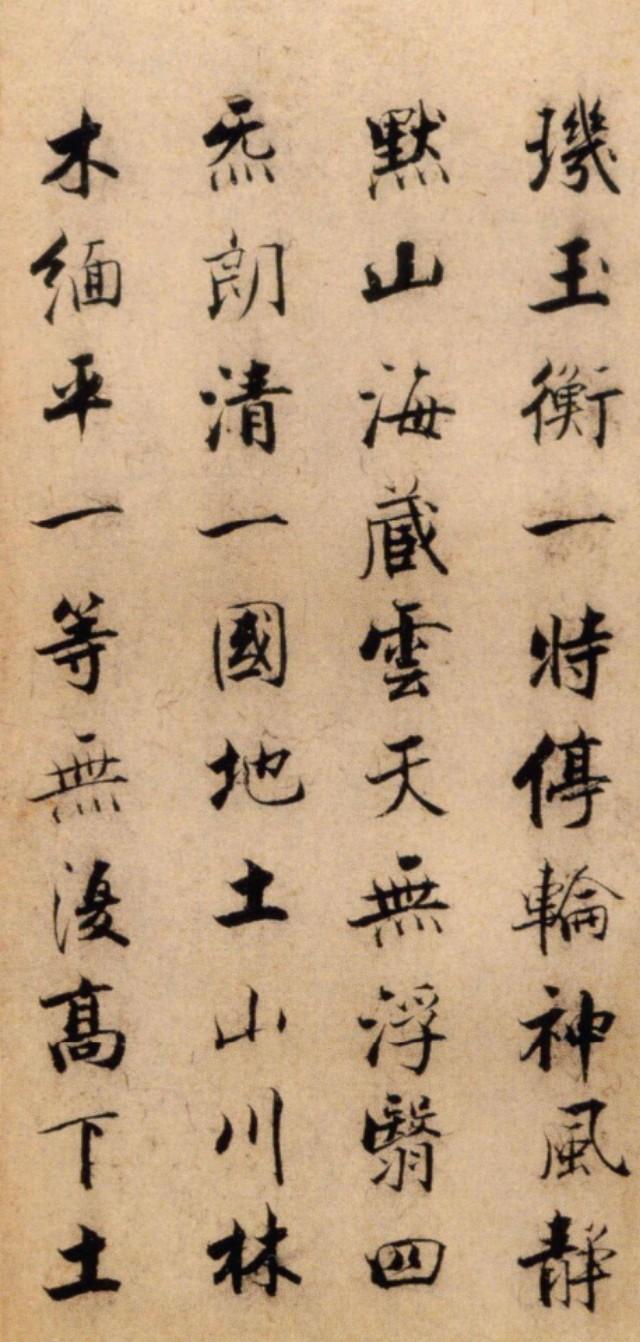 璣玉衡一時停輪神風靜
默山海蔵雲天無浮翳四
炁朗清一國地土山川林
木緬平一等無復髙下土